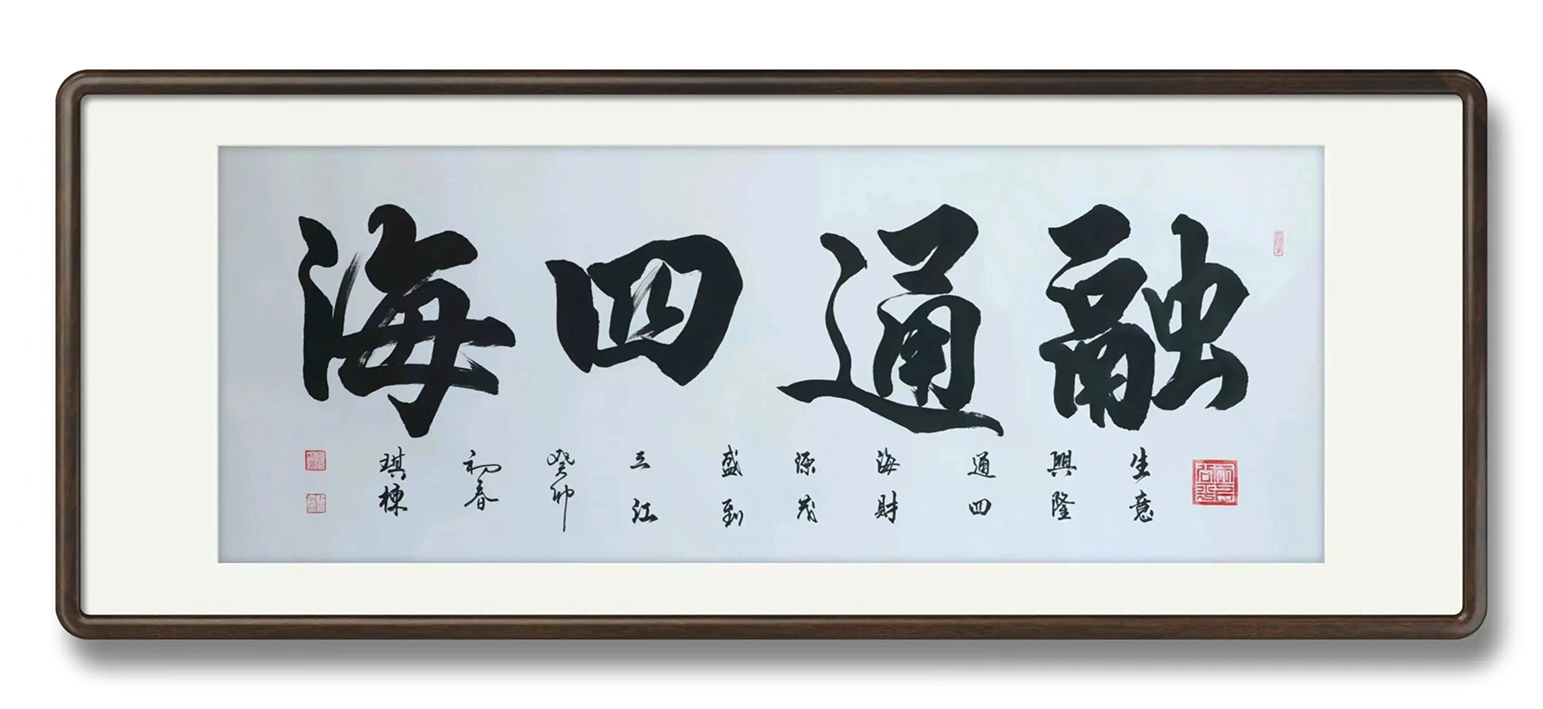 融通四海
生意
興隆
通四
海財
源茂
盛到
三江
癸卯
初春
琪棟